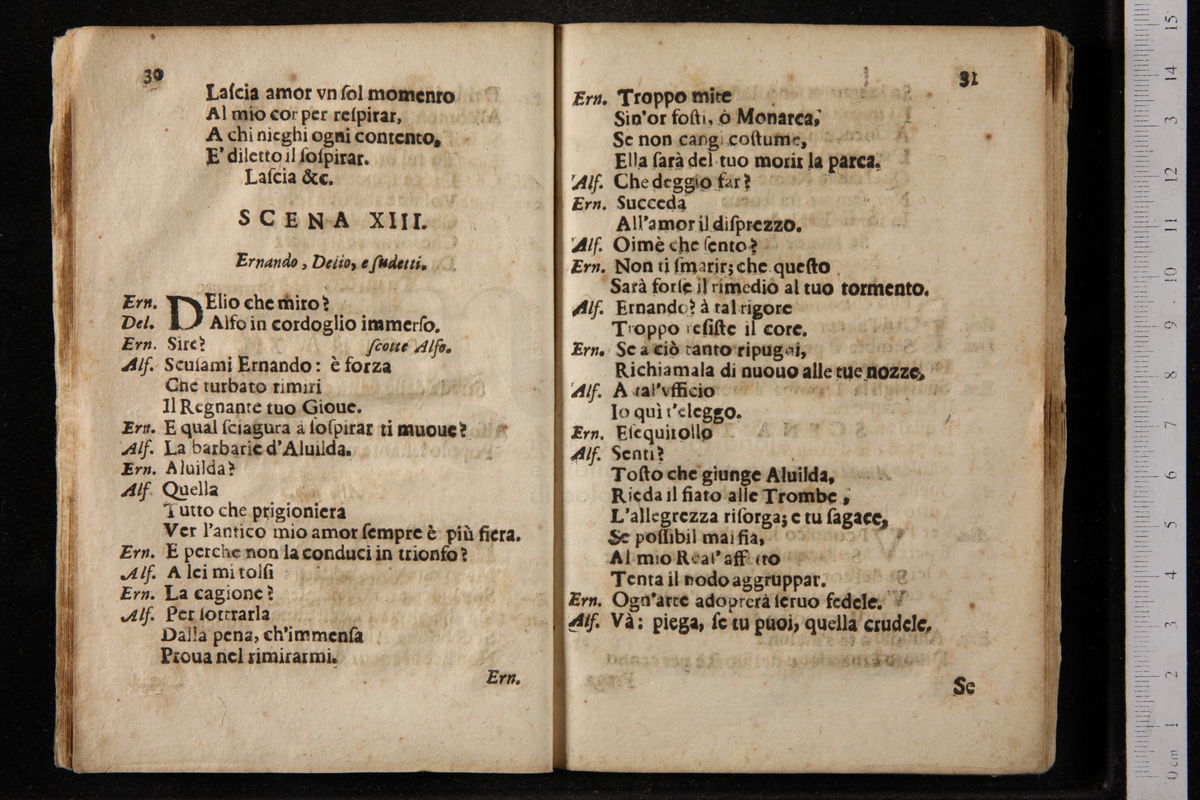 30
Laſcia amor vn ſol momento
Al mio cor per reſpirar,
A chi nieghi ogni contento,
E' diletto il ſoſpirar.
Laſcia &c.
SCENA XIII.
Ernando, Delio, e ſudetti.
Ern. DElio che miro?
Del. Alfo in cordoglio immerſo.
Ern. Sire? ſcotte Alfo.
Alf. Scuſami Ernando: è forza
Che turbato rimiri
Il Regnante tuo Gioue.
Ern. E qual ſciagura à ſoſpirar ti muoue?
Alf. La barbarie d'Aluilda.
Ern. Aluilda?
Alf. Quella
Tutto che prigioniera
Ver l'antico mio amor ſempre è più fiera.
Ern. E perche non la conduci in trionfo?
Alf. A lei mi tolſi
Ern. La cagione?
Alf. Per ſottrarla
Dalla pena, ch'immenſa
Proua nel rimirarmi.
Ern.
31
Ern. Troppo mite
Sin'or foſti, ò Monarca,
Se non cangi coſtume,
Ella ſarà del tuo morir la parca.
Alf. Che deggio far?
Ern. Succeda
All'amor il diſprezzo.
Alf. Oimè che ſento?
Ern. Non ti ſmarir; che queſto
Sarà forſe il rimedio al tuo tormento.
Alf. Ernando? à tal rigore
Troppo reſiſte il core.
Ern. Se a ciò tanto ripugni,
Richiamala di nuouo alle tue nozze,
Alf. A tal'vfficio
Io quì t'eleggo.
Ern. Eſequirollo
Alf. Senti?
Toſto che giunge Aluilda,
Rieda il fiato alle Trombe,
L'allegrezza riſorga; e tu ſagace,
Se poſſibil mai fia,
Al mio Real' affetto
Tenta il nodo aggruppar.
Ern. Ogn'arte adoprerà ſeruo fedele.
Alf. Và: piega, ſe tu puoi, quella crudele,
Se
15
14
13
12
11
10
9
8
7
6
5
4
3
2
1
0 cm